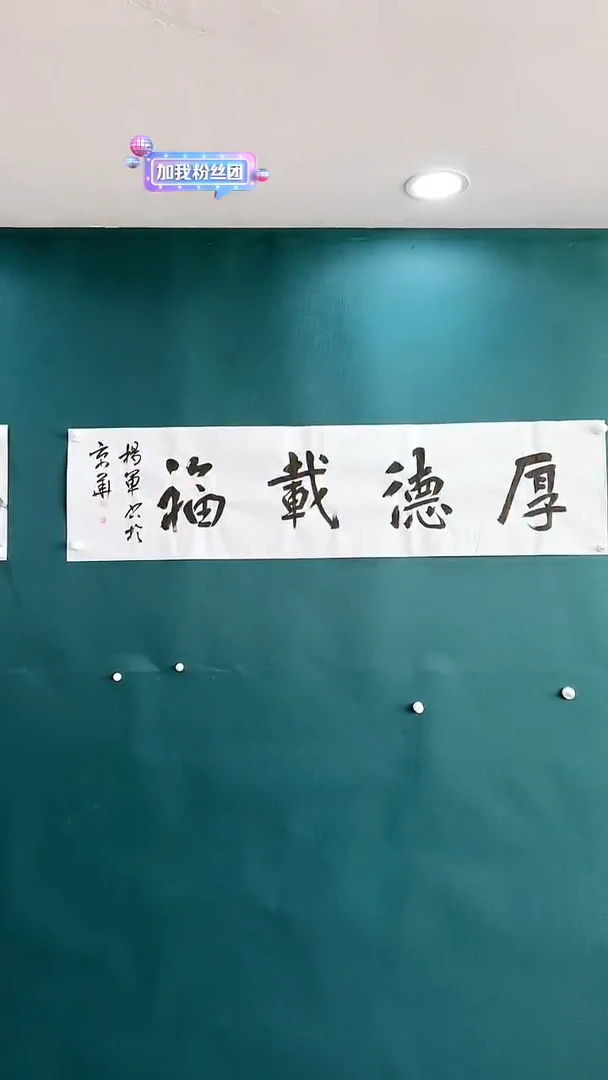 加我粉丝团
厚德載福
楊軍书於
京華